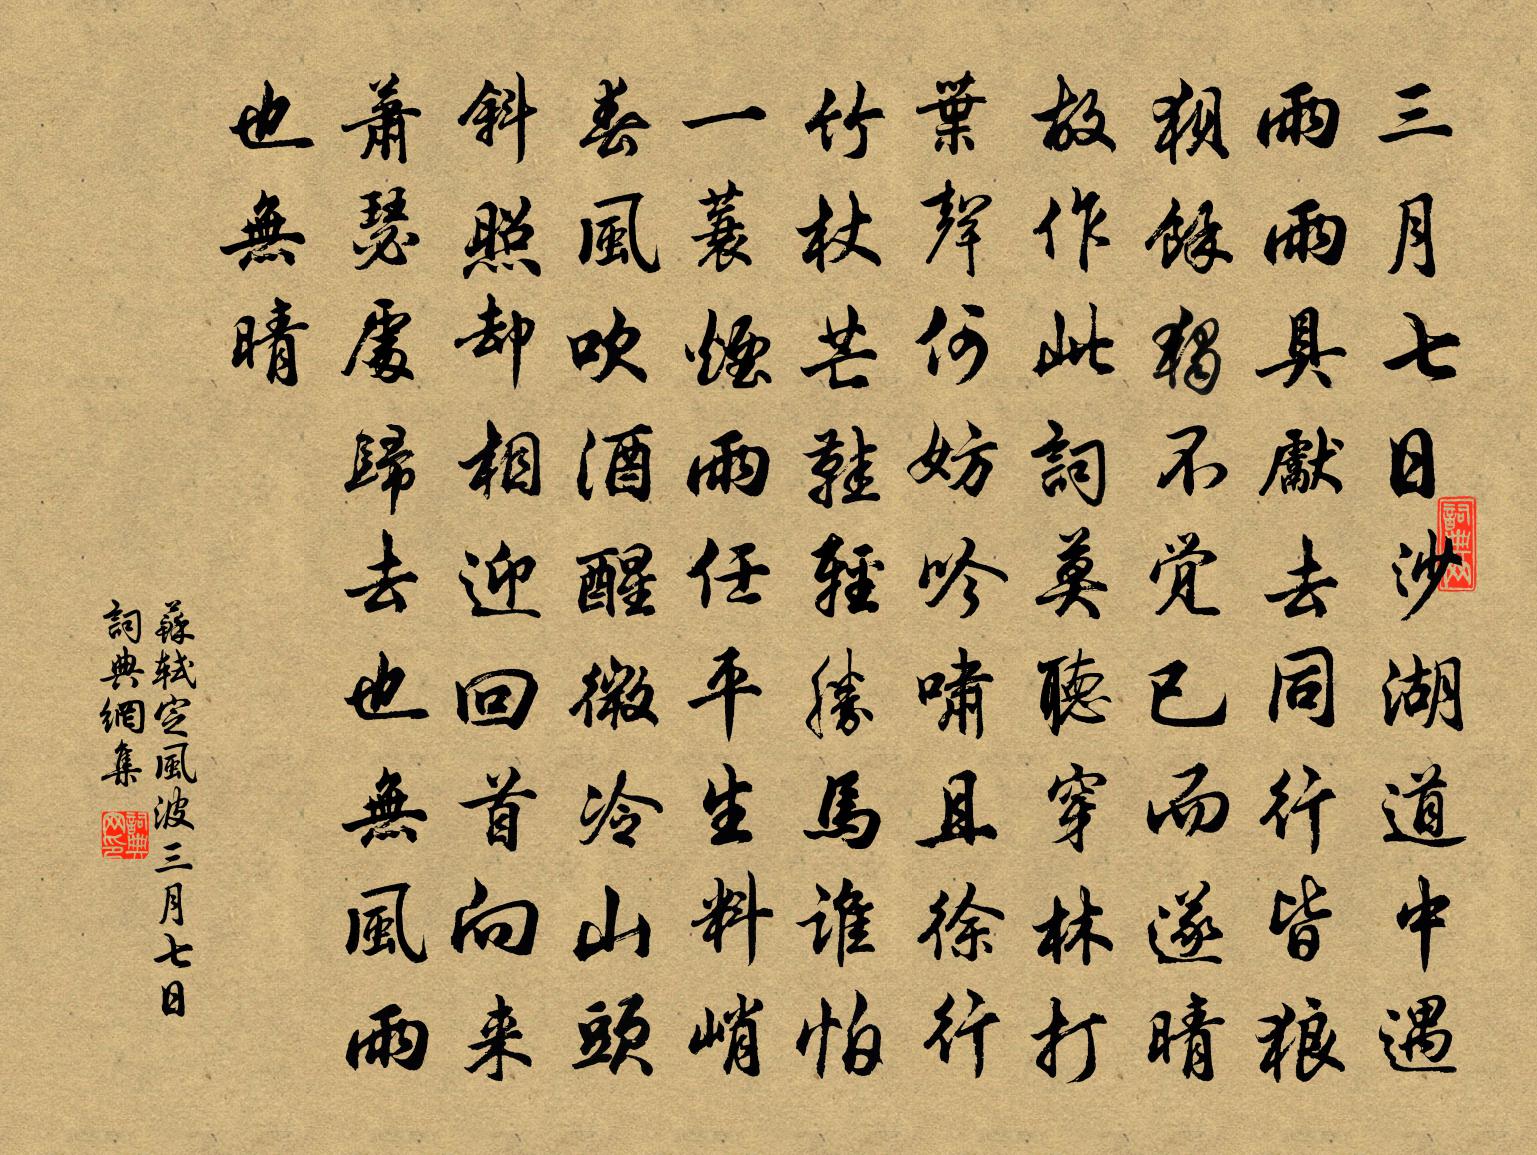 三月七日沙湖道中遇
雨雨具獻去同行皆狼
狽餘獨不觉已而遂晴
故作此詞莫聽穿林打
葉聲何妨吟嘯且徐行
竹杖芒鞋輕勝馬誰怕
一蓑煙雨任平生料峭
春風吹酒醒微冷山頭
斜照却相迎回首向来
蕭瑟處歸去也無風雨
也無晴
蘇軾定風波三月七日
詞典網集
詞典网
詞典网印